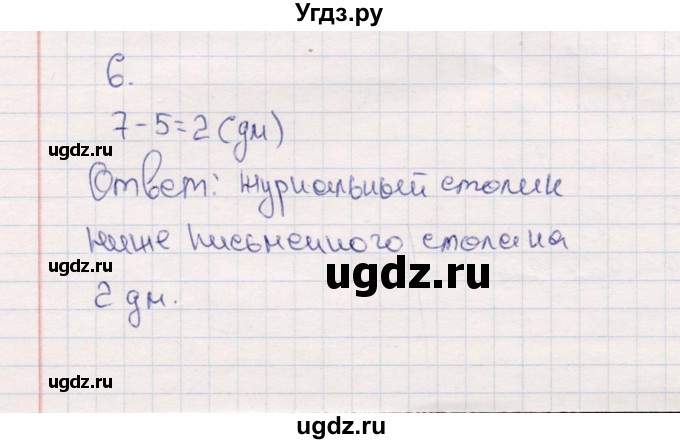 Угдз.ру
6.
7-5=2(дм)
ugdz.ru
Ответ: журнальный столик
ниже письменного стола на
ugdz.ru
ugdz.ru
2 дм.
ugdz.ru
ugdz.ru
ugdz.ru